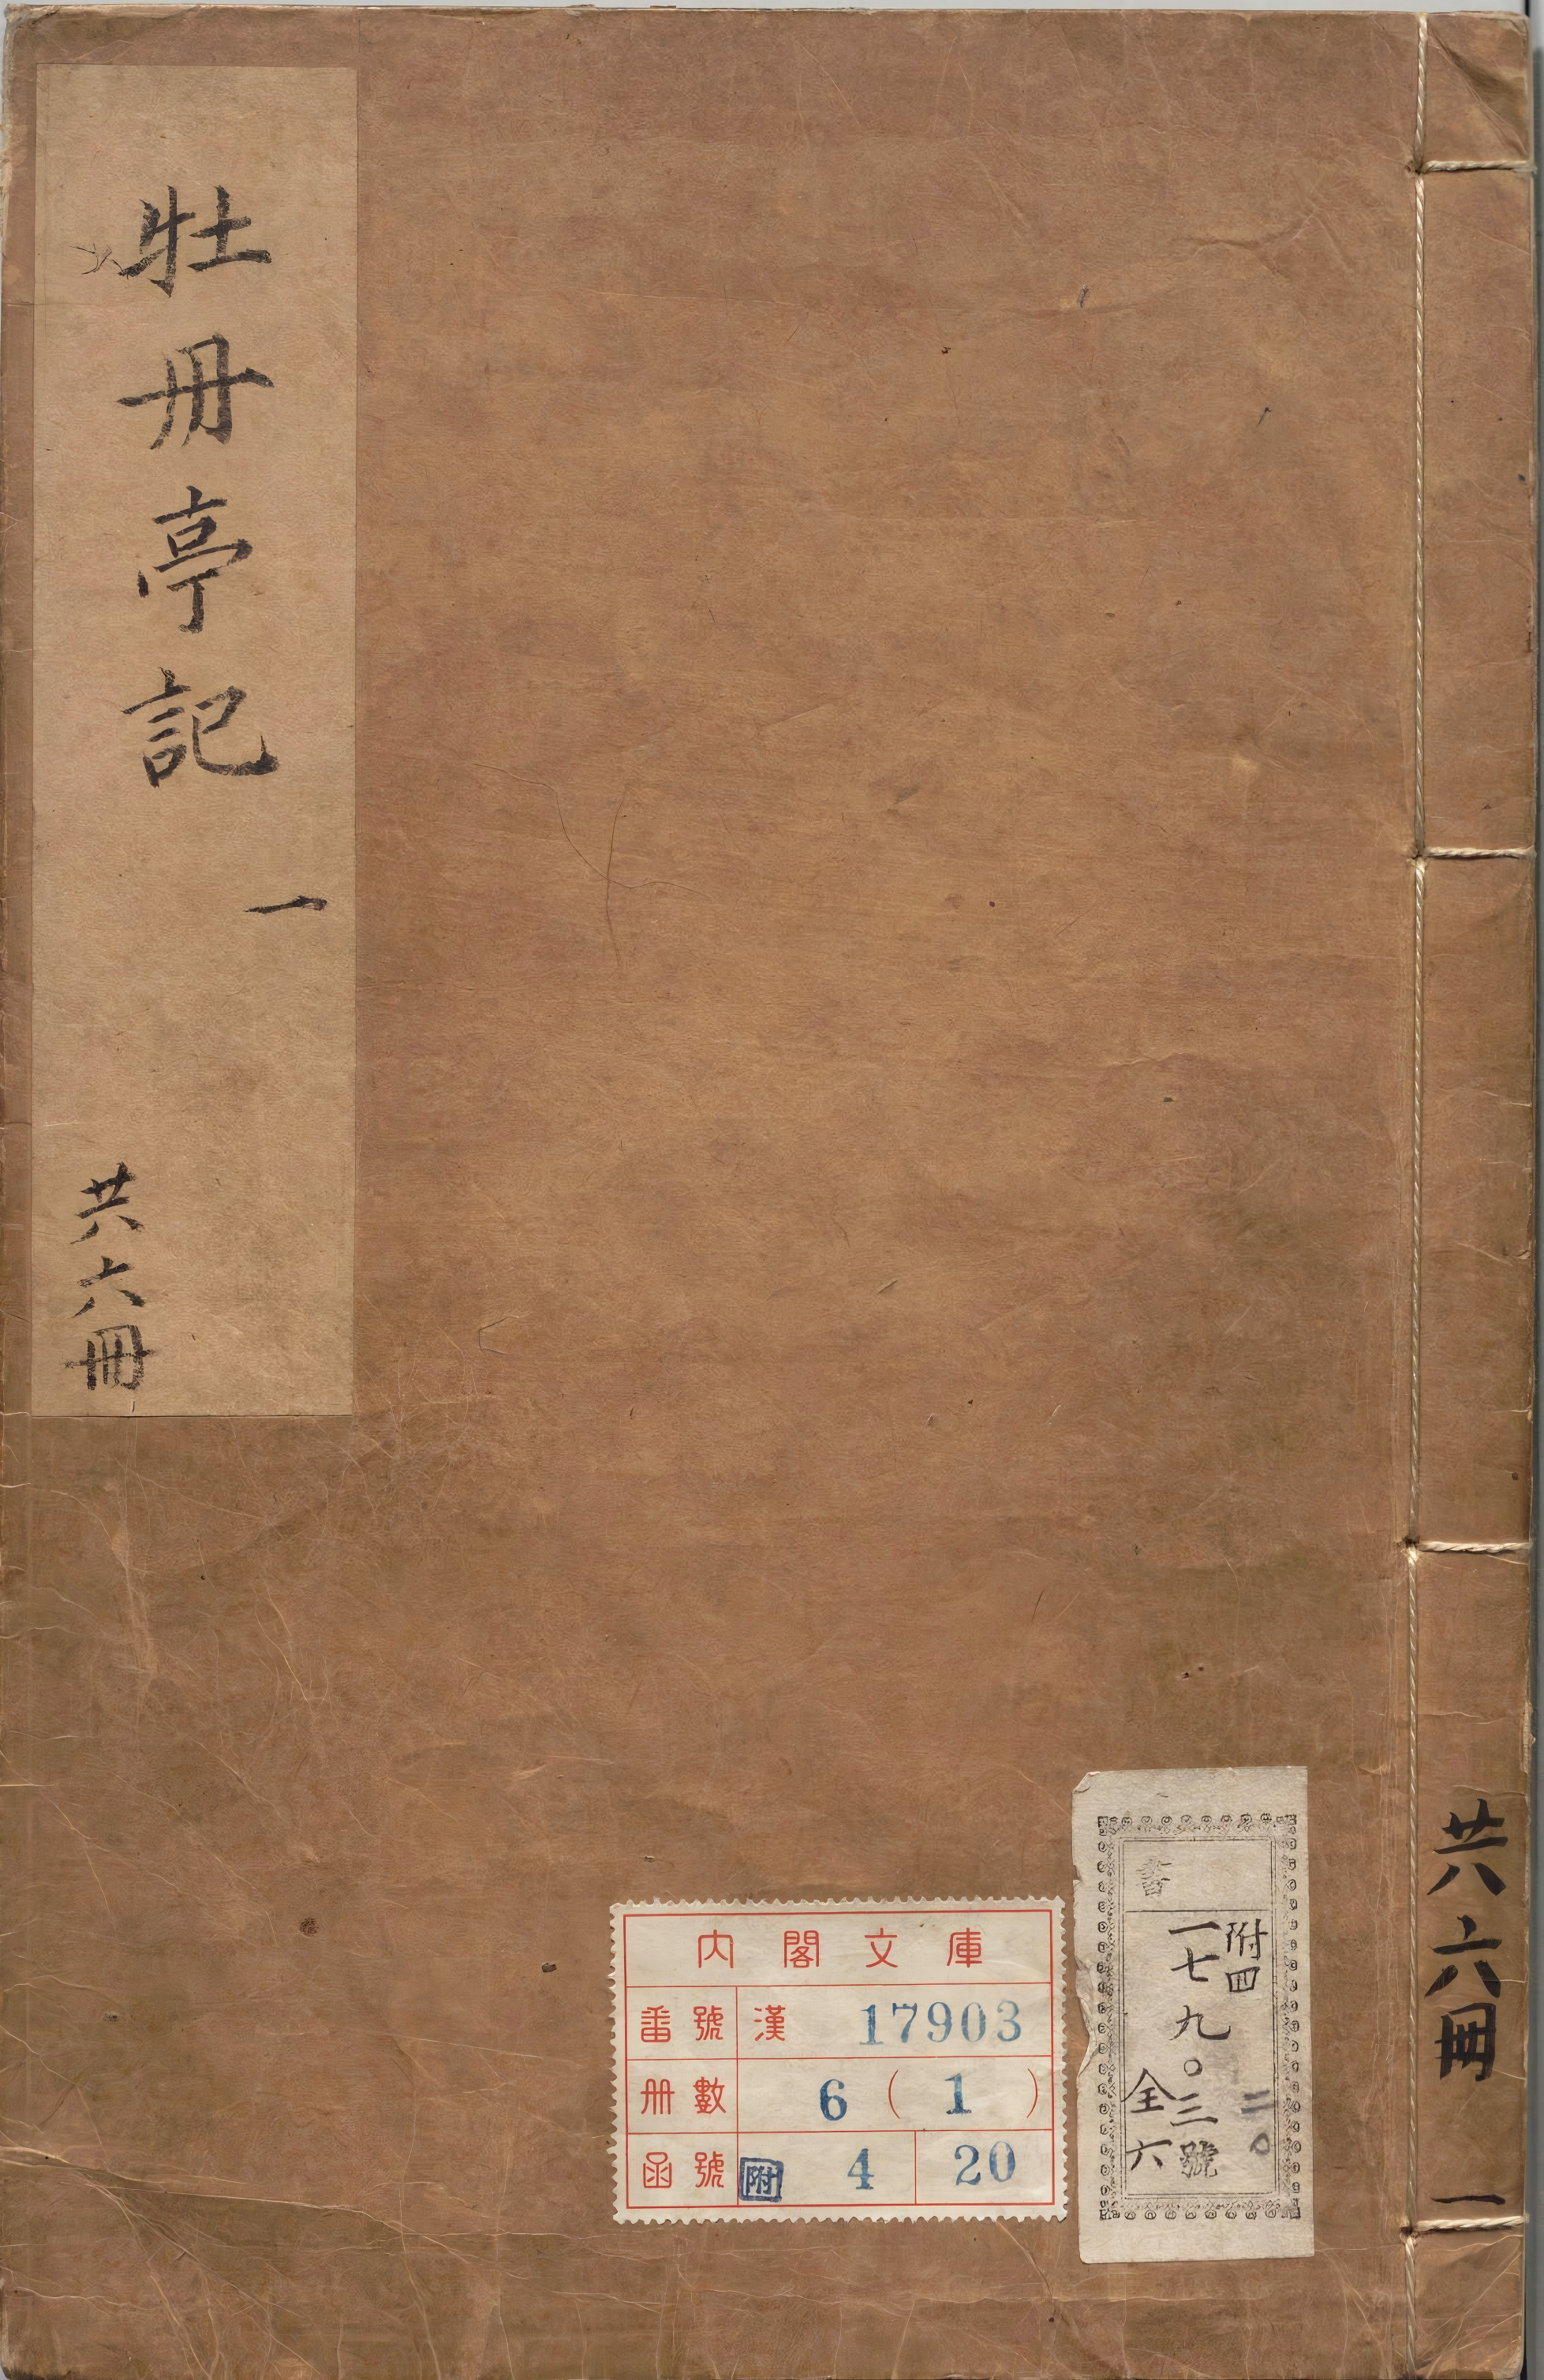 牡丹亭記
一
共六冊
内閣文庫
番號 漢 17903
册數 6 ( 1 )
函號 附 4 20
附四
二〇
一七九〇三號
全六
共六冊
一